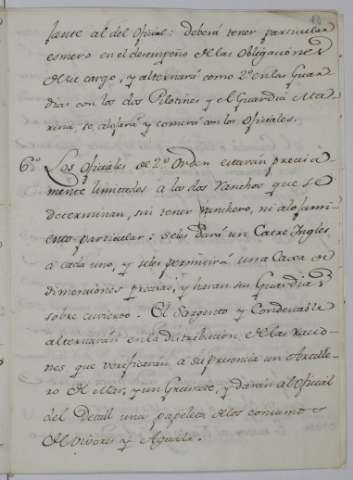 jante al del Oficial: deberá tener particular
esmero en el desempeño de las Obligaciones
de su cargo, y alternará como 2º en las Guar
dias con los dos Pilotines y el Guardia Ma
rina, se alojará y comerá con los oficiales.
6º Los Oficiales de 2º Orden estarán precisa
mente limitados a los dos Ranchos que se
determinan, sin tener ranchero, ni alojami
ento particular: se les dará un Catre Ingles
a cada uno, y se les permitirá una Caxa de
dimensiones precisas, y harán su Guardia
sobre cubierta. El Sargento y Condestable
alternarán en la distribución de las racio
nes que verificarán a su presencia un Artille
ro de Mar, y un Grumete, y darán al Oficial
del Detall una papeleta de los consumos
de Viveres y Aguada.